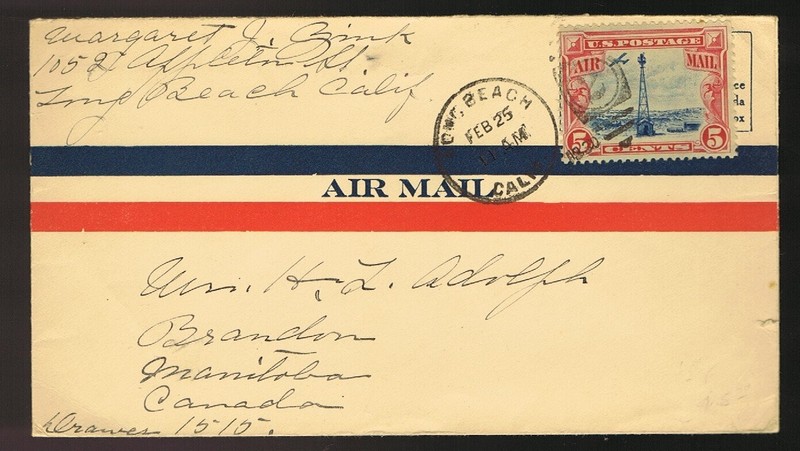 Margaret J. Zink
1052 Appleton St.
Long Beach Calif.
LONG BEACH
FEB 25
11 AM
CALIF.
1930
U.S. POSTAGE
AIR MAIL
5 5
CENTS
ce
da
ox
AIR MAIL
H. L. Adolph
Brandon
Manitoba
Canada
Drawer 1515.